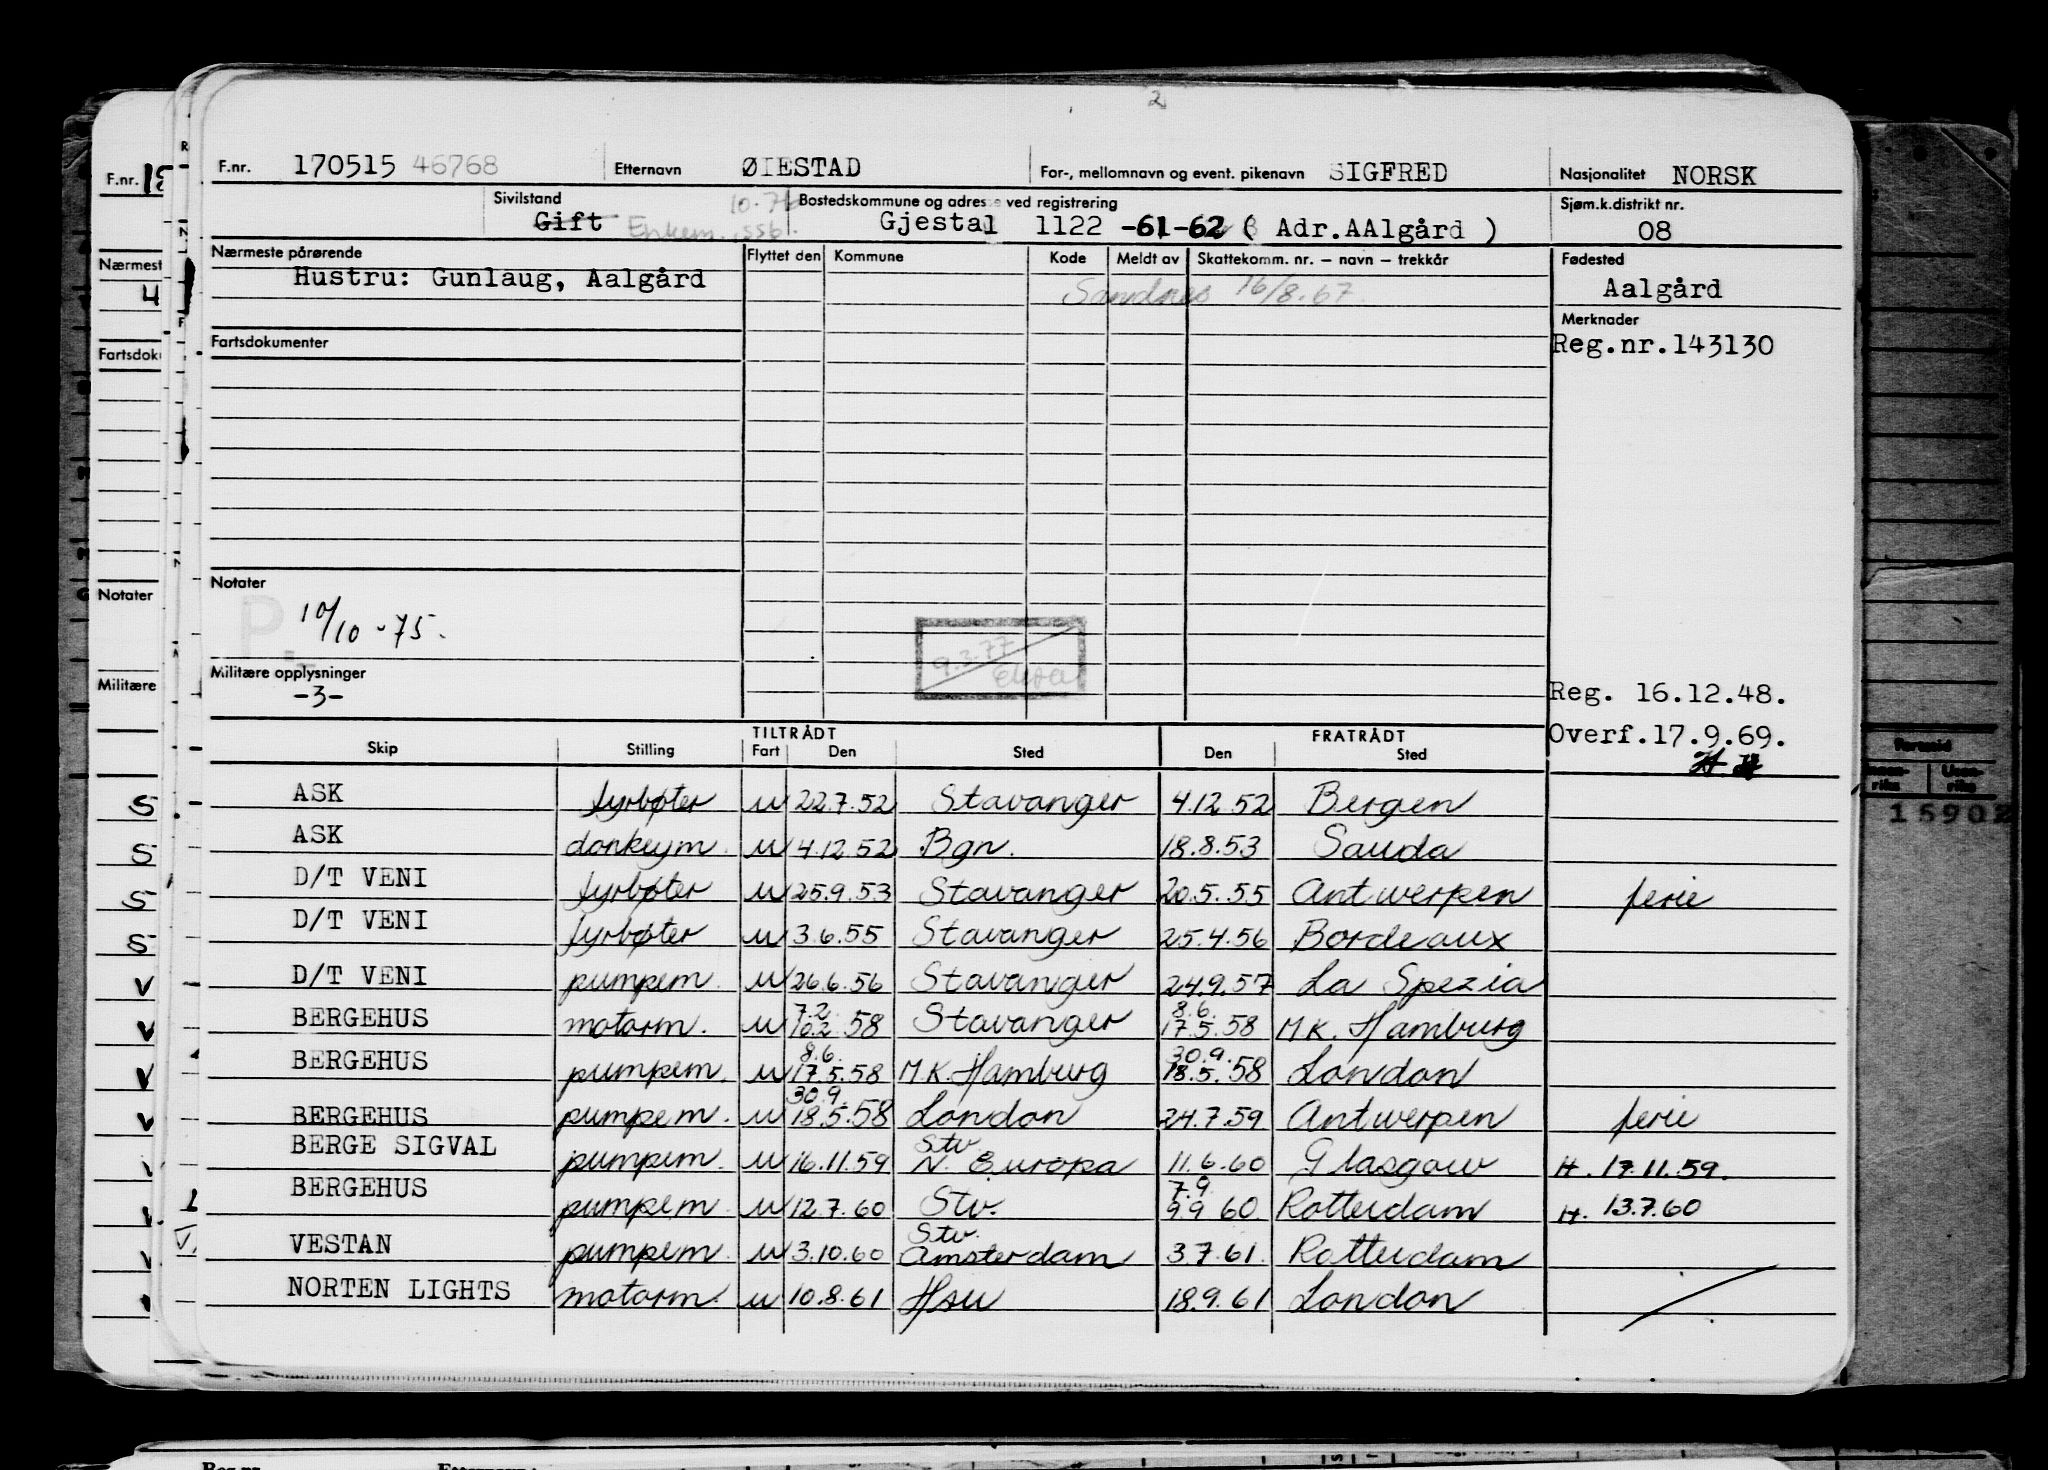 2
F.nr. 170515 46768 Etternavn ØIESTAD For-, mellomnavn og event. pikenavn SIGFRED Nasjonalitet NORSK
Sivilstand Gift Enkem. ssb. 10.76 Bostedskommune og adresse ved registrering Gjestal 1122 -61-62 ( Adr.AAlgård ) Sjøm.k.distrikt nr. 08
Nærmeste pårørende Flyttet den Kommune Kode Meldt av Skattekomm. nr. – navn – trekkår Fødested
Hustru: Gunlaug, Aalgård Sandnes 16/8.67 Aalgård
Merknader
Fartsdokumenter Reg.nr.143130
Notater
10/10 -75.
9.3.77
Militære opplysninger
-3- Reg. 16.12.48.
Overf.17.9.69.
TILTRÅDT FRATRÅDT
Skip Stilling Fart Den Sted Den Sted
ASK fyrbøter U 22.7.52 Stavanger 4.12.52 Bergen
ASK donkeym. U 4.12.52 Bgn. 18.8.53 Sauda
D/T VENI fyrbøter U 25.9.53 Stavanger 20.5.55 Antwerpen ferie
D/T VENI fyrbøter U 3.6.55 Stavanger 25.4.56 Bordeaux
D/T VENI pumpem. U 26.6.56 Stavanger 24.9.57 La Spezia
7.2. 8.6.
BERGEHUS motorm. U 10.2.58 Stavanger 17.5.58 M.K. Hamburg
8.6. 30.9.
BERGEHUS pumpem. U 17.5.58 M.K. Hamburg 18.5.58 London
30.9.
BERGEHUS pumpem. U 18.5.58 London 24.7.59 Antwerpen ferie
Stv.
BERGE SIGVAL pumpem. U 16.11.59 N. Europa 11.6.60 Glasgow H. 17.11.59.
7.9.
BERGEHUS pumpem. U 12.7.60 Stv. 9.9.60. Rotterdam H. 13.7.60
Stv.
VESTAN pumpem. U 3.10.60 Amsterdam 3.7.61. Rotterdam
NORTEN LIGHTS motorm. U 10.8.61 Hsu 18.9.61 London
F.nr.
Nærmest
Fartsdoku
Notater
Militære
15902